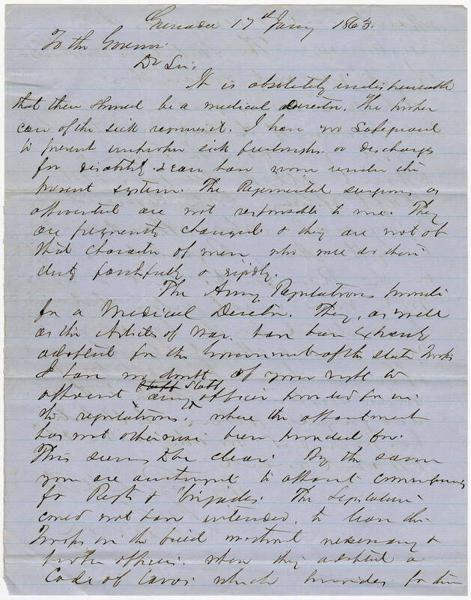 Grenada 17th Jany 1863.
To the Governor.
Dr Sir.
It is absolutely indispensable
that there should be a medical Director. The proper
care of the sick requires it. I have no safeguard
to prevent improper sick furloughs or discharges
for disability & can have none under the
present system. The Regimental surgeons as
appointed are not responsible to me. They
are frequently changed & they are not of
that character of men, who will do their
duty faithfully & rigidly.
The Army Regulations provide
for a Medical Director. They, as well
as the Articles of War, have been
adopted for the Government of the State troops
I have no doubt of your right to
appoint any staff officer provided for in
the regulations, where the appointment
has not otherwise been provided for.
This seems to be clear. By the same
you are authorized to appoint
for Regts & Brigades. The Legislature
could not have intended, to leave the
troops in the field without necessary &
proper officers, when they adopted a
Code of Laws which provides for them